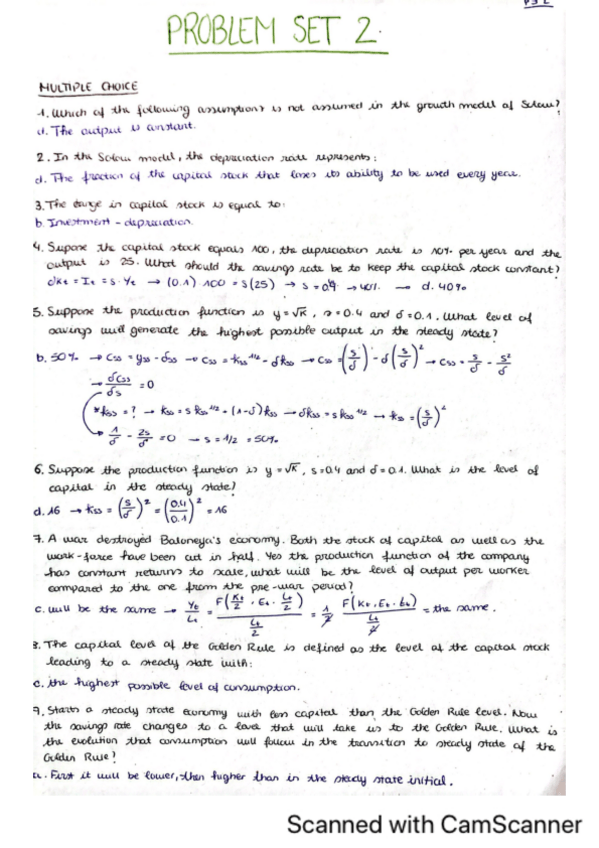 PS 2
PROBLEM SET 2.
MULTIPLE CHOICE
1. Which of the following assumptions is not assumed in the growth model of Solow?
d. The output is constant.
2. In the Solow model, the depreciation rate represents:
d. The fraction of the capital stock that loses its ability to be used every year.
3. The change in capital stock is equal to:
b. Investment - depreciation.
4. Supose the capital stock equals 100, the depreciation rate is 10% per year and the
output is 25. What should the savings rate be to keep the capital stock constant?
δKt = It = s · Yt → (0.1) 100 = s(25) → s = 0.4 → 40% → d. 40%
5. Suppose the production function is y = √K, s = 0.4 and δ = 0.1. What level of
savings will generate the highest possible output in the steady state?
b. 50% → Css = yss - δss → Css = kss^1/2 - δkss → Css = (s/δ) - δ(s/δ)² → Css = s/δ - s²/δ
→ δCss/δs = 0
*kss = ? → kss = s kss^1/2 + (1-δ)kss → δkss = s kss^1/2 → kss = (s/δ)²
→ 1/δ - 2s/δ = 0 → s = 1/2 = 50%
6. Suppose the production function is y = √K, s = 0.4 and δ = 0.1. What is the level of
capital in the steady state?
d. 16 → kss = (s/δ)² = (0.4/0.1)² = 16
7. A war destroyed Baloneya's economy. Both the stock of capital as well as the
work-force have been cut in half. Yes the production function of the company
has constant returns to scale, what will be the level of output per worker
compared to the one from the pre-war period?
c. will be the same → Yt/Lt = F(Kt/2, Et · Lt/2) / (Lt/2) = 1/2 F(Kt, Et · Lt) / (Lt/2) = the same.
8. The capital level of the Golden Rule is defined as the level of the capital stock
leading to a steady state with:
c. the highest possible level of consumption.
9. Starts a steady state economy with less capital than the Golden Rule level. Now
the savings rate changes to a level that will take us to the Golden Rule. What is
the evolution that consumption will follow in the transition to steady state of the
Golden Rule?
a. First it will be lower, then higher than in the steady state initial.
Scanned with CamScanner